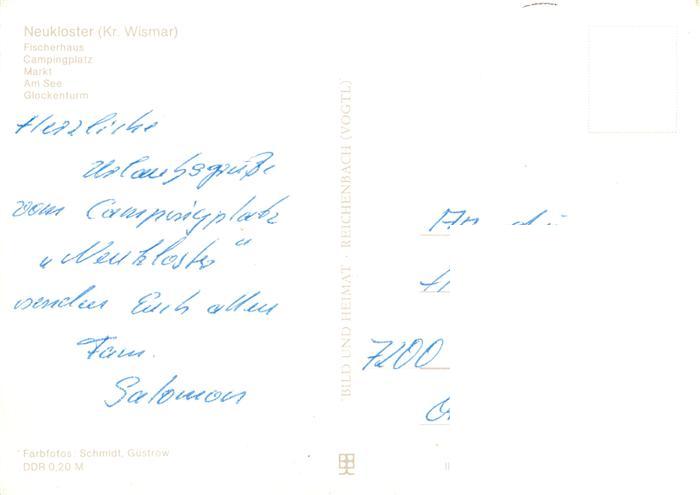 Neukloster (Kr. Wismar)
Fischerhaus
Campingplatz
Markt
Am See
Glockenturm
Herzliche
Urlaubsgrüße
vom Campingplatz
"Neukloster"
senden Euch allen
Fam.
Salomon
Farbfotos: Schmidt, Güstrow
DDR 0,20 M
BILD UND HEIMAT · REICHENBACH (VOGTL)
An
7200
II